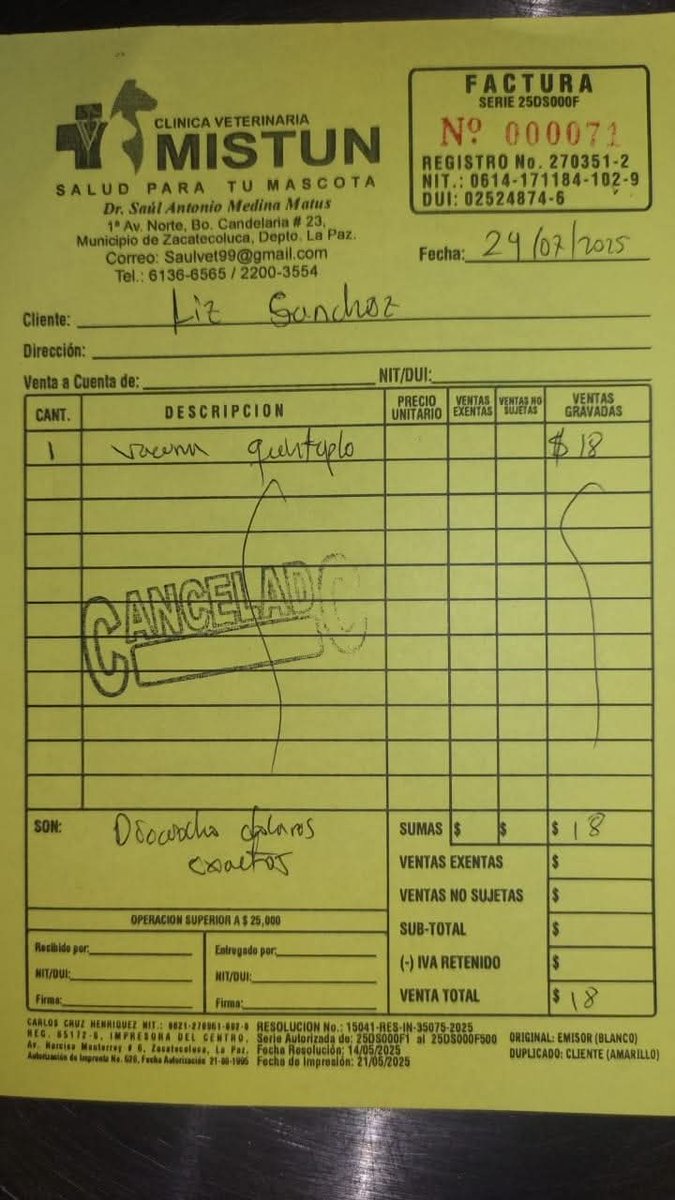 CLINICA VETERINARIA
MISTUN
SALUD PARA TU MASCOTA
Dr. Saúl Antonio Medina Matus
1ª Av. Norte, Bo. Candelaria # 23,
Municipio de Zacatecoluca, Depto. La Paz.
Correo: Saulvet99@gmail.com
Tel.: 6136-6565 / 2200-3554
FACTURA
SERIE 25DS000F
Nº 000071
REGISTRO No. 270351-2
NIT.: 0614-171184-102-9
DUI: 02524874-6
Fecha: 24/07/2025
Cliente: Liz Sanchez
Dirección:
Venta a Cuenta de: NIT/DUI:
CANT. DESCRIPCION PRECIO UNITARIO VENTAS EXENTAS VENTAS NO SUJETAS VENTAS GRAVADAS
1 vacuna quintuple $ 18
CANCELADO
SON: Dieciocho dolares
exactos
SUMAS $ $ $ 18
VENTAS EXENTAS $
VENTAS NO SUJETAS $
SUB-TOTAL $
(-) IVA RETENIDO $
VENTA TOTAL $ 18
OPERACION SUPERIOR A $ 25,000
Recibido por: Entregado por:
NIT/DUI: NIT/DUI:
Firma: Firma:
CARLOS CRUZ HENRIQUEZ NIT.:
REG. 65172-6, IMPRESORA DEL CENTRO,
Av. Narciso Monterrey # 6, Zacatecoluca, La Paz.
Autorización de Imprenta No. 620, Fecha Autorización
RESOLUCION No.: 15041-RES-IN-35075-2025
Serie Autorizada de: 25DS000F1 al 25DS000F500
Fecha Resolución: 14/05/2025
Fecha de Impresión: 21/05/2025
ORIGINAL: EMISOR (BLANCO)
DUPLICADO: CLIENTE (AMARILLO)